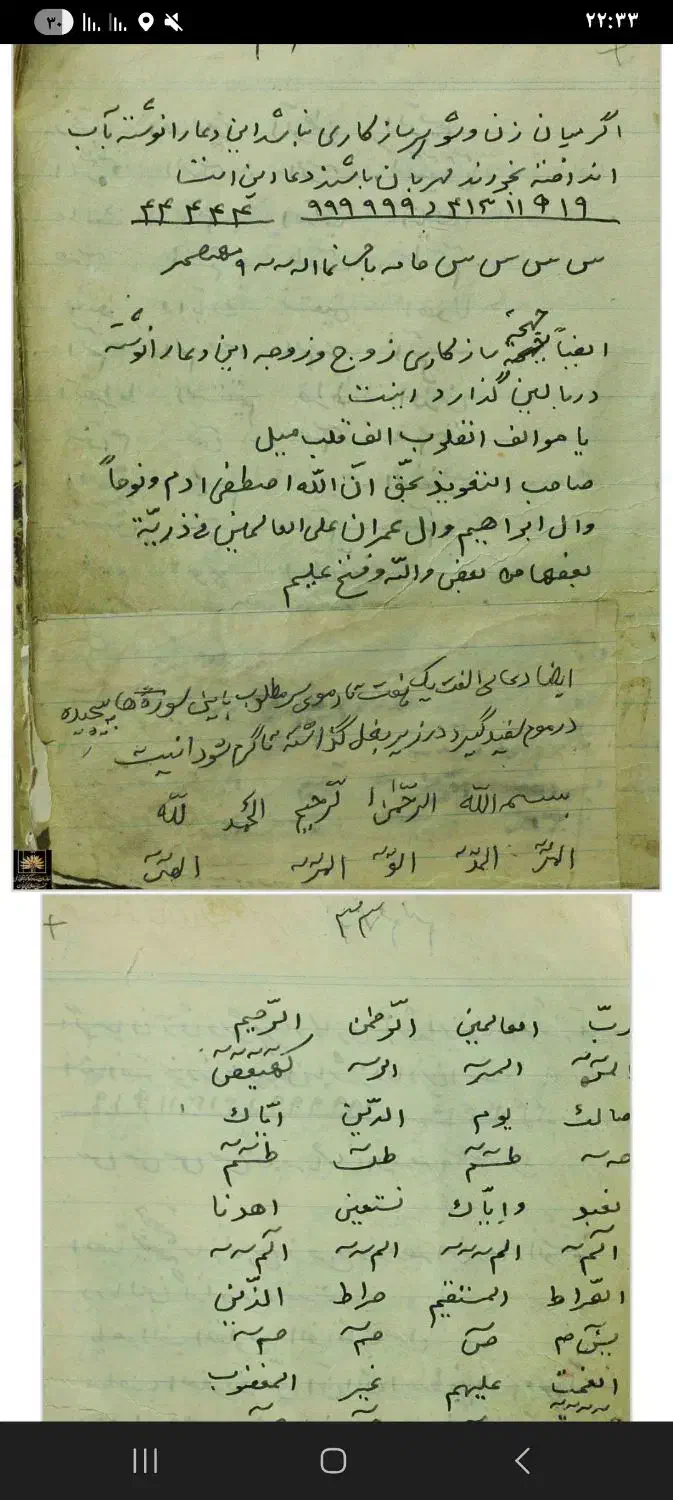 ۲۲:۳۳
۳۰
اگر میان زن و شوهر سازکاری نباشد این دعا را نوشته بآب
انداخته بخورند مهربان باشند دعا این است
۱۹ ۹ ۱۱ ۱۳ ۴ د ۹۹۹ ۹۹۹ ۴ ۴ ۴ ۴ ۴
س س س س
ایضاً بجهة سازکاری زوج و زوجه این دعا را نوشته
در بالین گذارد اینست
یا مؤالف القلوب الف قلب میل
صاحب التفویذ بحق انّ الله اصطفی ادم و نوحاً
وال ابراهیم وال عمران علی العالمین فی ذریّة
بعضها من بعض والله علیم
ایضا دعای الفت یک هفت تار موی سر مطلوب باین سوره‌ها پیچیده
در موم سفید گیرد در زیر بغل گذاشته تا گرم شود اینست
بسم الله الرّحمن الرّحیم الحمد للّه
المر الر المر المص
۳۳
ربّ العالمین الرّحمن الرّحیم
المر الر کهیعص
مالک یوم الدّین ایّاک
طسم طس طسم
نعبد وایّاک نستعین اهدنا
الم الم الم الم
الصّراط المستقیم صراط الذّین
ص حم حم
انعمت علیهم غیر المغضوب